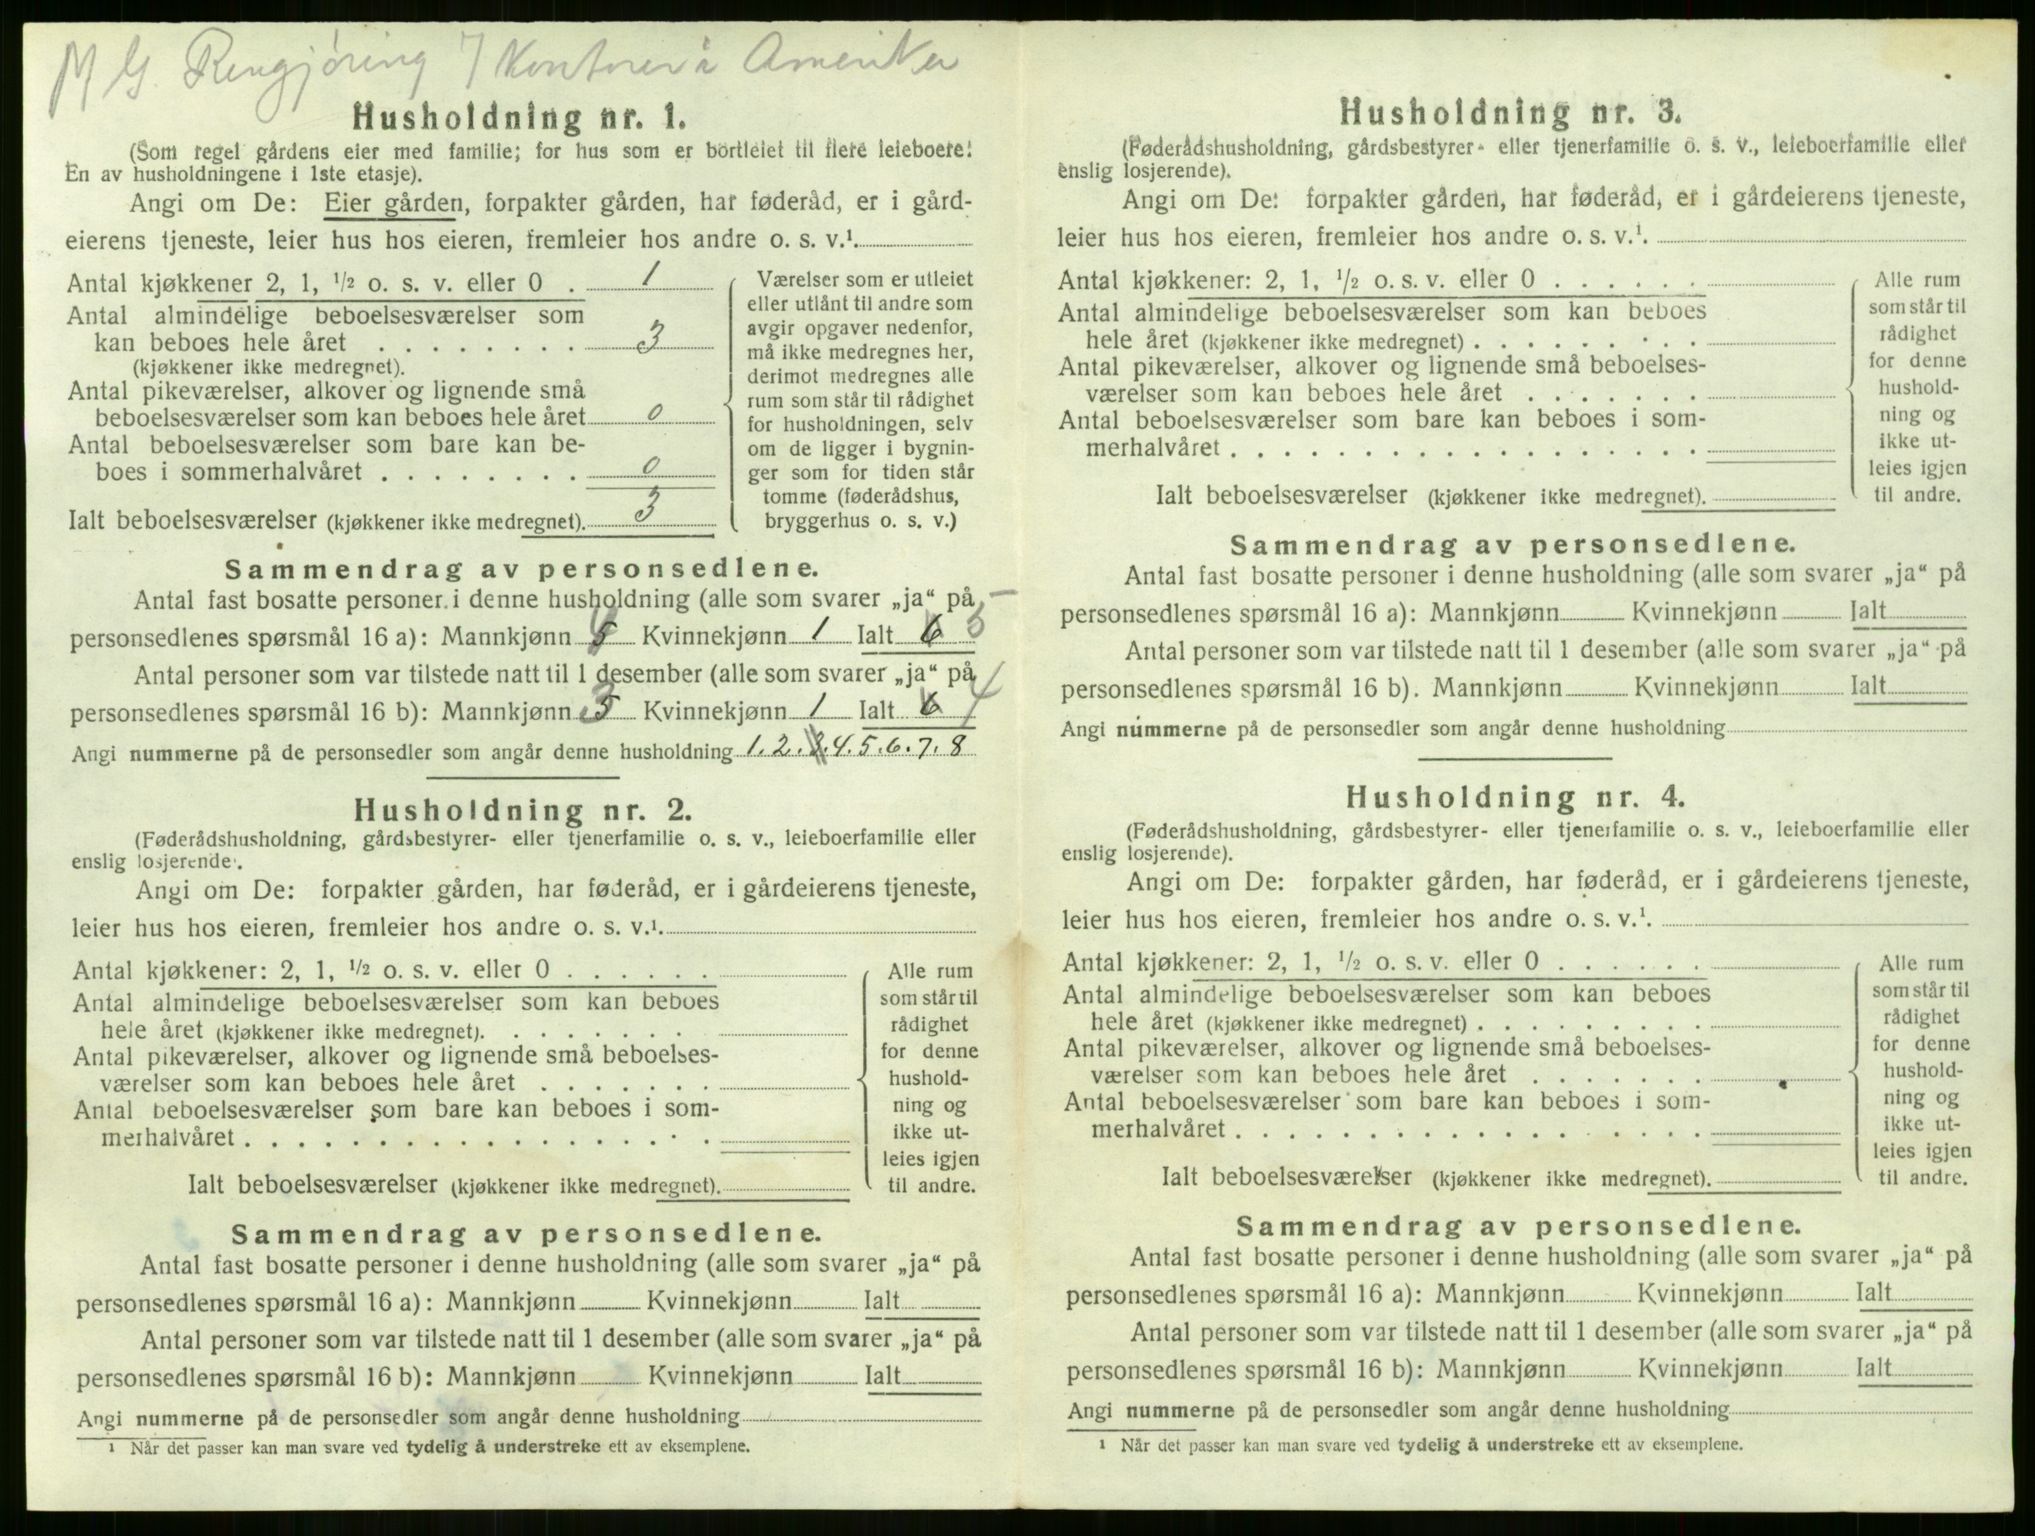 M G. Rengjøring 7 Kontorer i Amerika
Husholdning nr. 1.
(Som regel gårdens eier med familie; for hus som er bortleiet til flere leieboere:
En av husholdningene i 1ste etasje).
Angi om De: Eier gården, forpakter gården, har føderåd, er i gård-
eierens tjeneste, leier hus hos eieren, fremleier hos andre o. s. v.¹.
Antal kjøkkener 2, 1, ½ o. s. v. eller 0 . 1
Antal almindelige beboelsesværelser som
kan beboes hele året . . . . . . . . 3
(kjøkkener ikke medregnet).
Antal pikeværelser, alkover og lignende små
beboelsesværelser som kan beboes hele året 0
Antal beboelsesværelser som bare kan be-
boes i sommerhalvåret . . . . . . . . 0
Ialt beboelsesværelser (kjøkkener ikke medregnet). 3
Værelser som er utleiet
eller utlånt til andre som
avgir opgaver nedenfor,
må ikke medregnes her,
derimot medregnes alle
rum som står til rådighet
for husholdningen, selv
om de ligger i bygnin-
ger som for tiden står
tomme (føderådshus,
bryggerhus o. s. v.)
Sammendrag av personsedlene.
Antal fast bosatte personer i denne husholdning (alle som svarer „ja“ på
personsedlenes spørsmål 16 a): Mannkjønn 5 4 Kvinnekjønn 1 Ialt 6 5
Antal personer som var tilstede natt til 1 desember (alle som svarer „ja“ på
personsedlenes spørsmål 16 b): Mannkjønn 5 3 Kvinnekjønn 1 Ialt 6 4
Angi nummerne på de personsedler som angår denne husholdning 1. 2. 3. 4. 5. 6. 7. 8
Husholdning nr. 2.
(Føderådshusholdning, gårdsbestyrer- eller tjenerfamilie o. s. v., leieboerfamilie eller
enslig losjerende).
Angi om De: forpakter gården, har føderåd, er i gårdeierens tjeneste,
leier hus hos eieren, fremleier hos andre o. s. v.¹.
Antal kjøkkener: 2, 1, ½ o. s. v. eller 0 . . . . . .
Antal almindelige beboelsesværelser som kan beboes
hele året (kjøkkener ikke medregnet). . . . . . . .
Antal pikeværelser, alkover og lignende små beboelses-
værelser som kan beboes hele året . . . . . . .
Antal beboelsesværelser som bare kan beboes i som-
merhalvåret . . . . . . . . . . . . . . . . . .
Ialt beboelsesværelser (kjøkkener ikke medregnet).
Alle rum
som står til
rådighet
for denne
hushold-
ning og
ikke ut-
leies igjen
til andre.
Sammendrag av personsedlene.
Antal fast bosatte personer i denne husholdning (alle som svarer „ja“ på
personsedlenes spørsmål 16 a): Mannkjønn Kvinnekjønn Ialt
Antal personer som var tilstede natt til 1 desember (alle som svarer „ja“ på
personsedlenes spørsmål 16 b): Mannkjønn Kvinnekjønn Ialt
Angi nummerne på de personsedler som angår denne husholdning
¹ Når det passer kan man svare ved tydelig å understreke ett av eksemplene.
Husholdning nr. 3.
(Føderådshusholdning, gårdsbestyrer- eller tjenerfamilie o. s. v., leieboerfamilie eller
enslig losjerende).
Angi om De: forpakter gården, har føderåd, er i gårdeierens tjeneste,
leier hus hos eieren, fremleier hos andre o. s. v.¹.
Antal kjøkkener: 2, 1, ½ o. s. v. eller 0 . . . . . .
Antal almindelige beboelsesværelser som kan beboes
hele året (kjøkkener ikke medregnet) . . . . . . . . .
Antal pikeværelser, alkover og lignende små beboelses-
værelser som kan beboes hele året . . . . . . .
Antal beboelsesværelser som bare kan beboes i som-
merhalvåret . . . . . . . . . . . . . . . . . .
Ialt beboelsesværelser (kjøkkener ikke medregnet).
Alle rum
som står til
rådighet
for denne
hushold-
ning og
ikke ut-
leies igjen
til andre.
Sammendrag av personsedlene.
Antal fast bosatte personer i denne husholdning (alle som svarer „ja“ på
personsedlenes spørsmål 16 a): Mannkjønn Kvinnekjønn Ialt
Antal personer som var tilstede natt til 1 desember (alle som svarer „ja“ på
personsedlenes spørsmål 16 b). Mannkjønn Kvinnekjønn Ialt
Angi nummerne på de personsedler som angår denne husholdning
Husholdning nr. 4.
(Føderådshusholdning, gårdsbestyrer- eller tjenerfamilie o. s. v., leieboerfamilie eller
enslig losjerende).
Angi om De: forpakter gården, har føderåd, er i gårdeierens tjeneste,
leier hus hos eieren, fremleier hos andre o. s. v.¹.
Antal kjøkkener: 2, 1, ½ o. s. v. eller 0 . . . . . .
Antal almindelige beboelsesværelser som kan beboes
hele året (kjøkkener ikke medregnet) . . . . . . . . .
Antal pikeværelser, alkover og lignende små beboelses-
værelser som kan beboes hele året . . . . . . .
Antal beboelsesværelser som bare kan beboes i som-
merhalvåret . . . . . . . . . . . . . . . . . .
Ialt beboelsesværelser (kjøkkener ikke medregnet).
Alle rum
som står til
rådighet
for denne
hushold-
ning og
ikke ut-
leies igjen
til andre.
Sammendrag av personsedlene.
Antal fast bosatte personer i denne husholdning (alle som svarer „ja“ på
personsedlenes spørsmål 16 a): Mannkjønn Kvinnekjønn Ialt
Antal personer som var tilstede natt til 1 desember (alle som svarer „ja“ på
personsedlenes spørsmål 16 b): Mannkjønn Kvinnekjønn Ialt
Angi nummerne på de personsedler som angår denne husholdning
¹ Når det passer kan man svare ved tydelig å understreke ett av eksemplene.